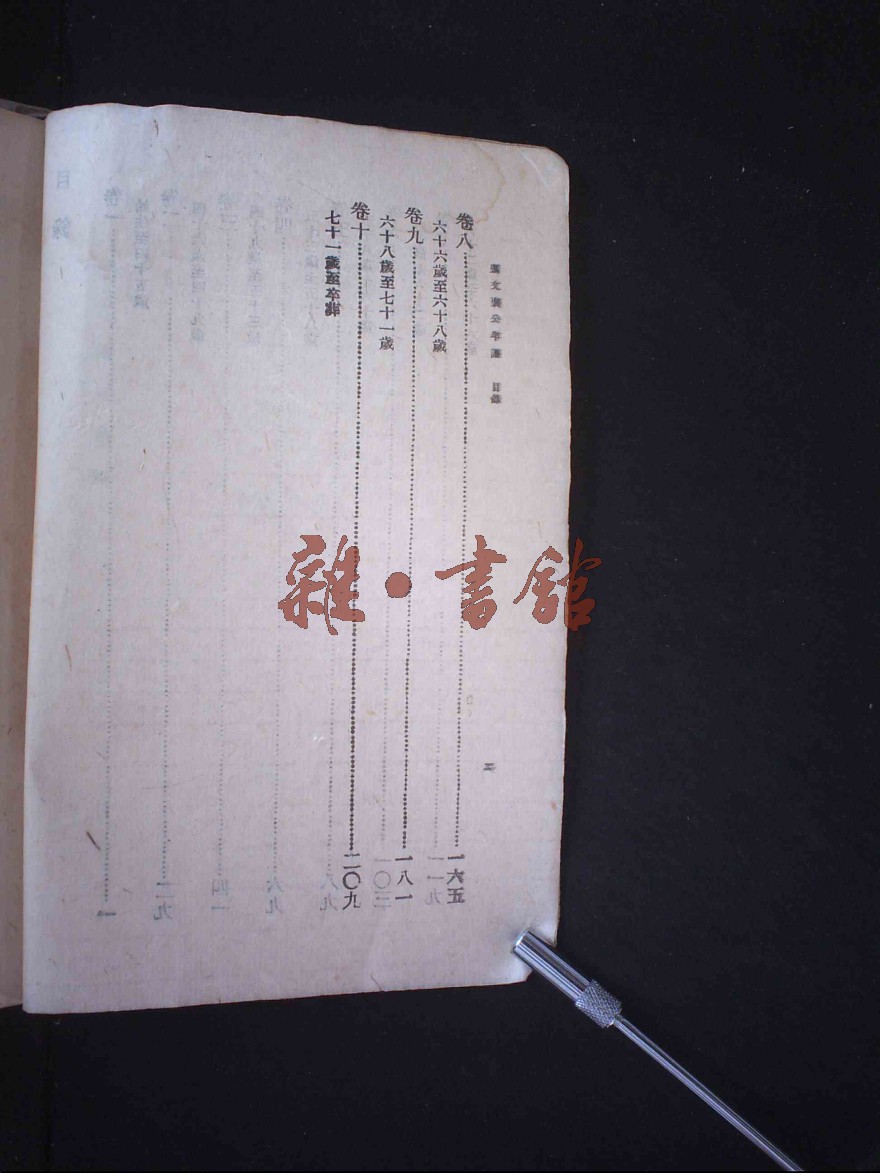 張文襄公年譜 目錄
二
卷八 一六五
六十六歲至六十八歲
卷九 一八一
六十八歲至七十一歲
卷十 二〇九
七十一歲至卒葬
雜·書館